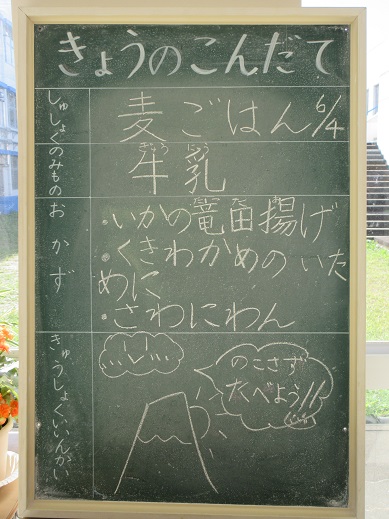 きょうのこんだて
しゅしょく
麦ごはん 6/4
のみもの
牛乳
ぎゅう にゅう
おかず
・いかの竜田揚げ
・くきわかめのいた
めに
・さわにわん
きゅうしょくいいんかい
のこさず
たべよう!!